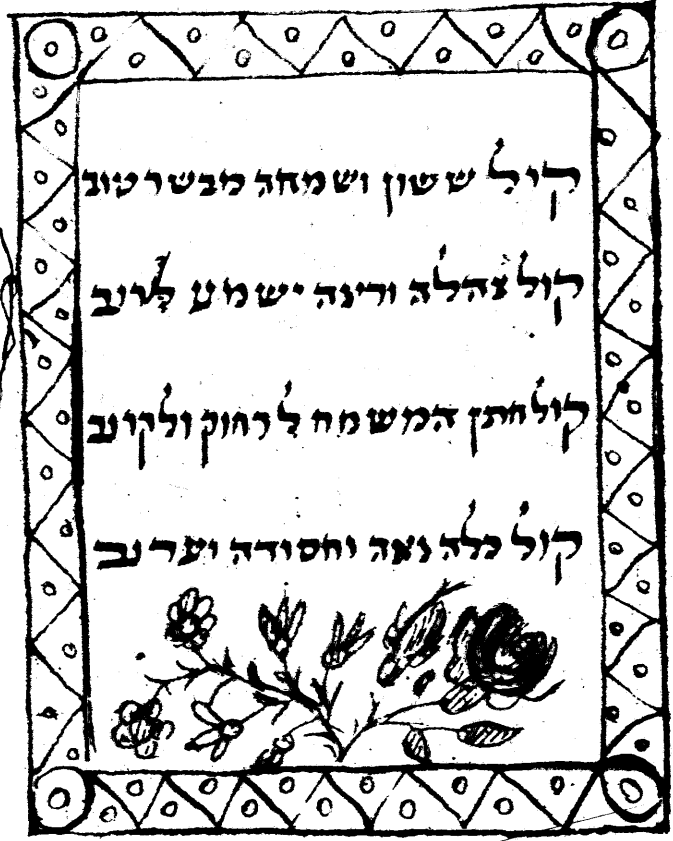 קול ששון ושמחה מבשר טוב
קול צהלה ורינה ישמע לריוב
קול חתן המשמח לרחוק ולקרוב
קול כלה נאה וחסודה יערב